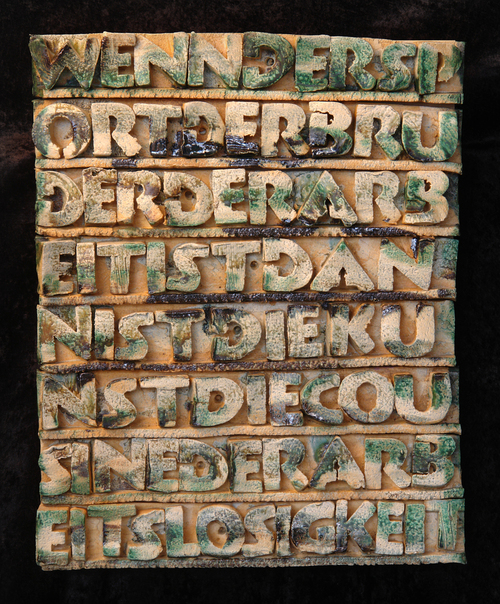 WENNDERSP
ORTDERBRU
DERDERARB
EITISTDAN
NISTDIEKU
NSTDIECOU
SINEDERARB
EITSLOSIGKEIT